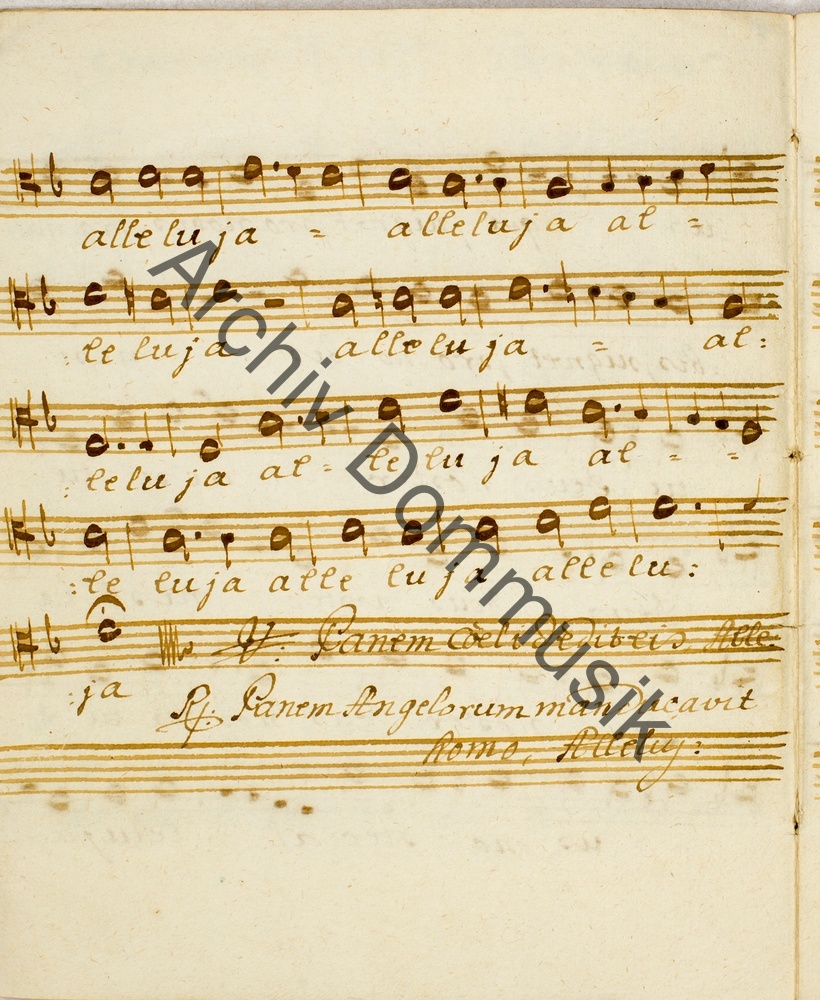 alleluja = alleluja al =
: le luja alleluja = al:
: leluja al = le lu ja al = =
: le luja alle luja allelu:
: ja ℣. Panem Coeli dedit eis, Alle:
℟. Panem Angelorum manducavit
homo, Alleluj:
Archiv Dommusik